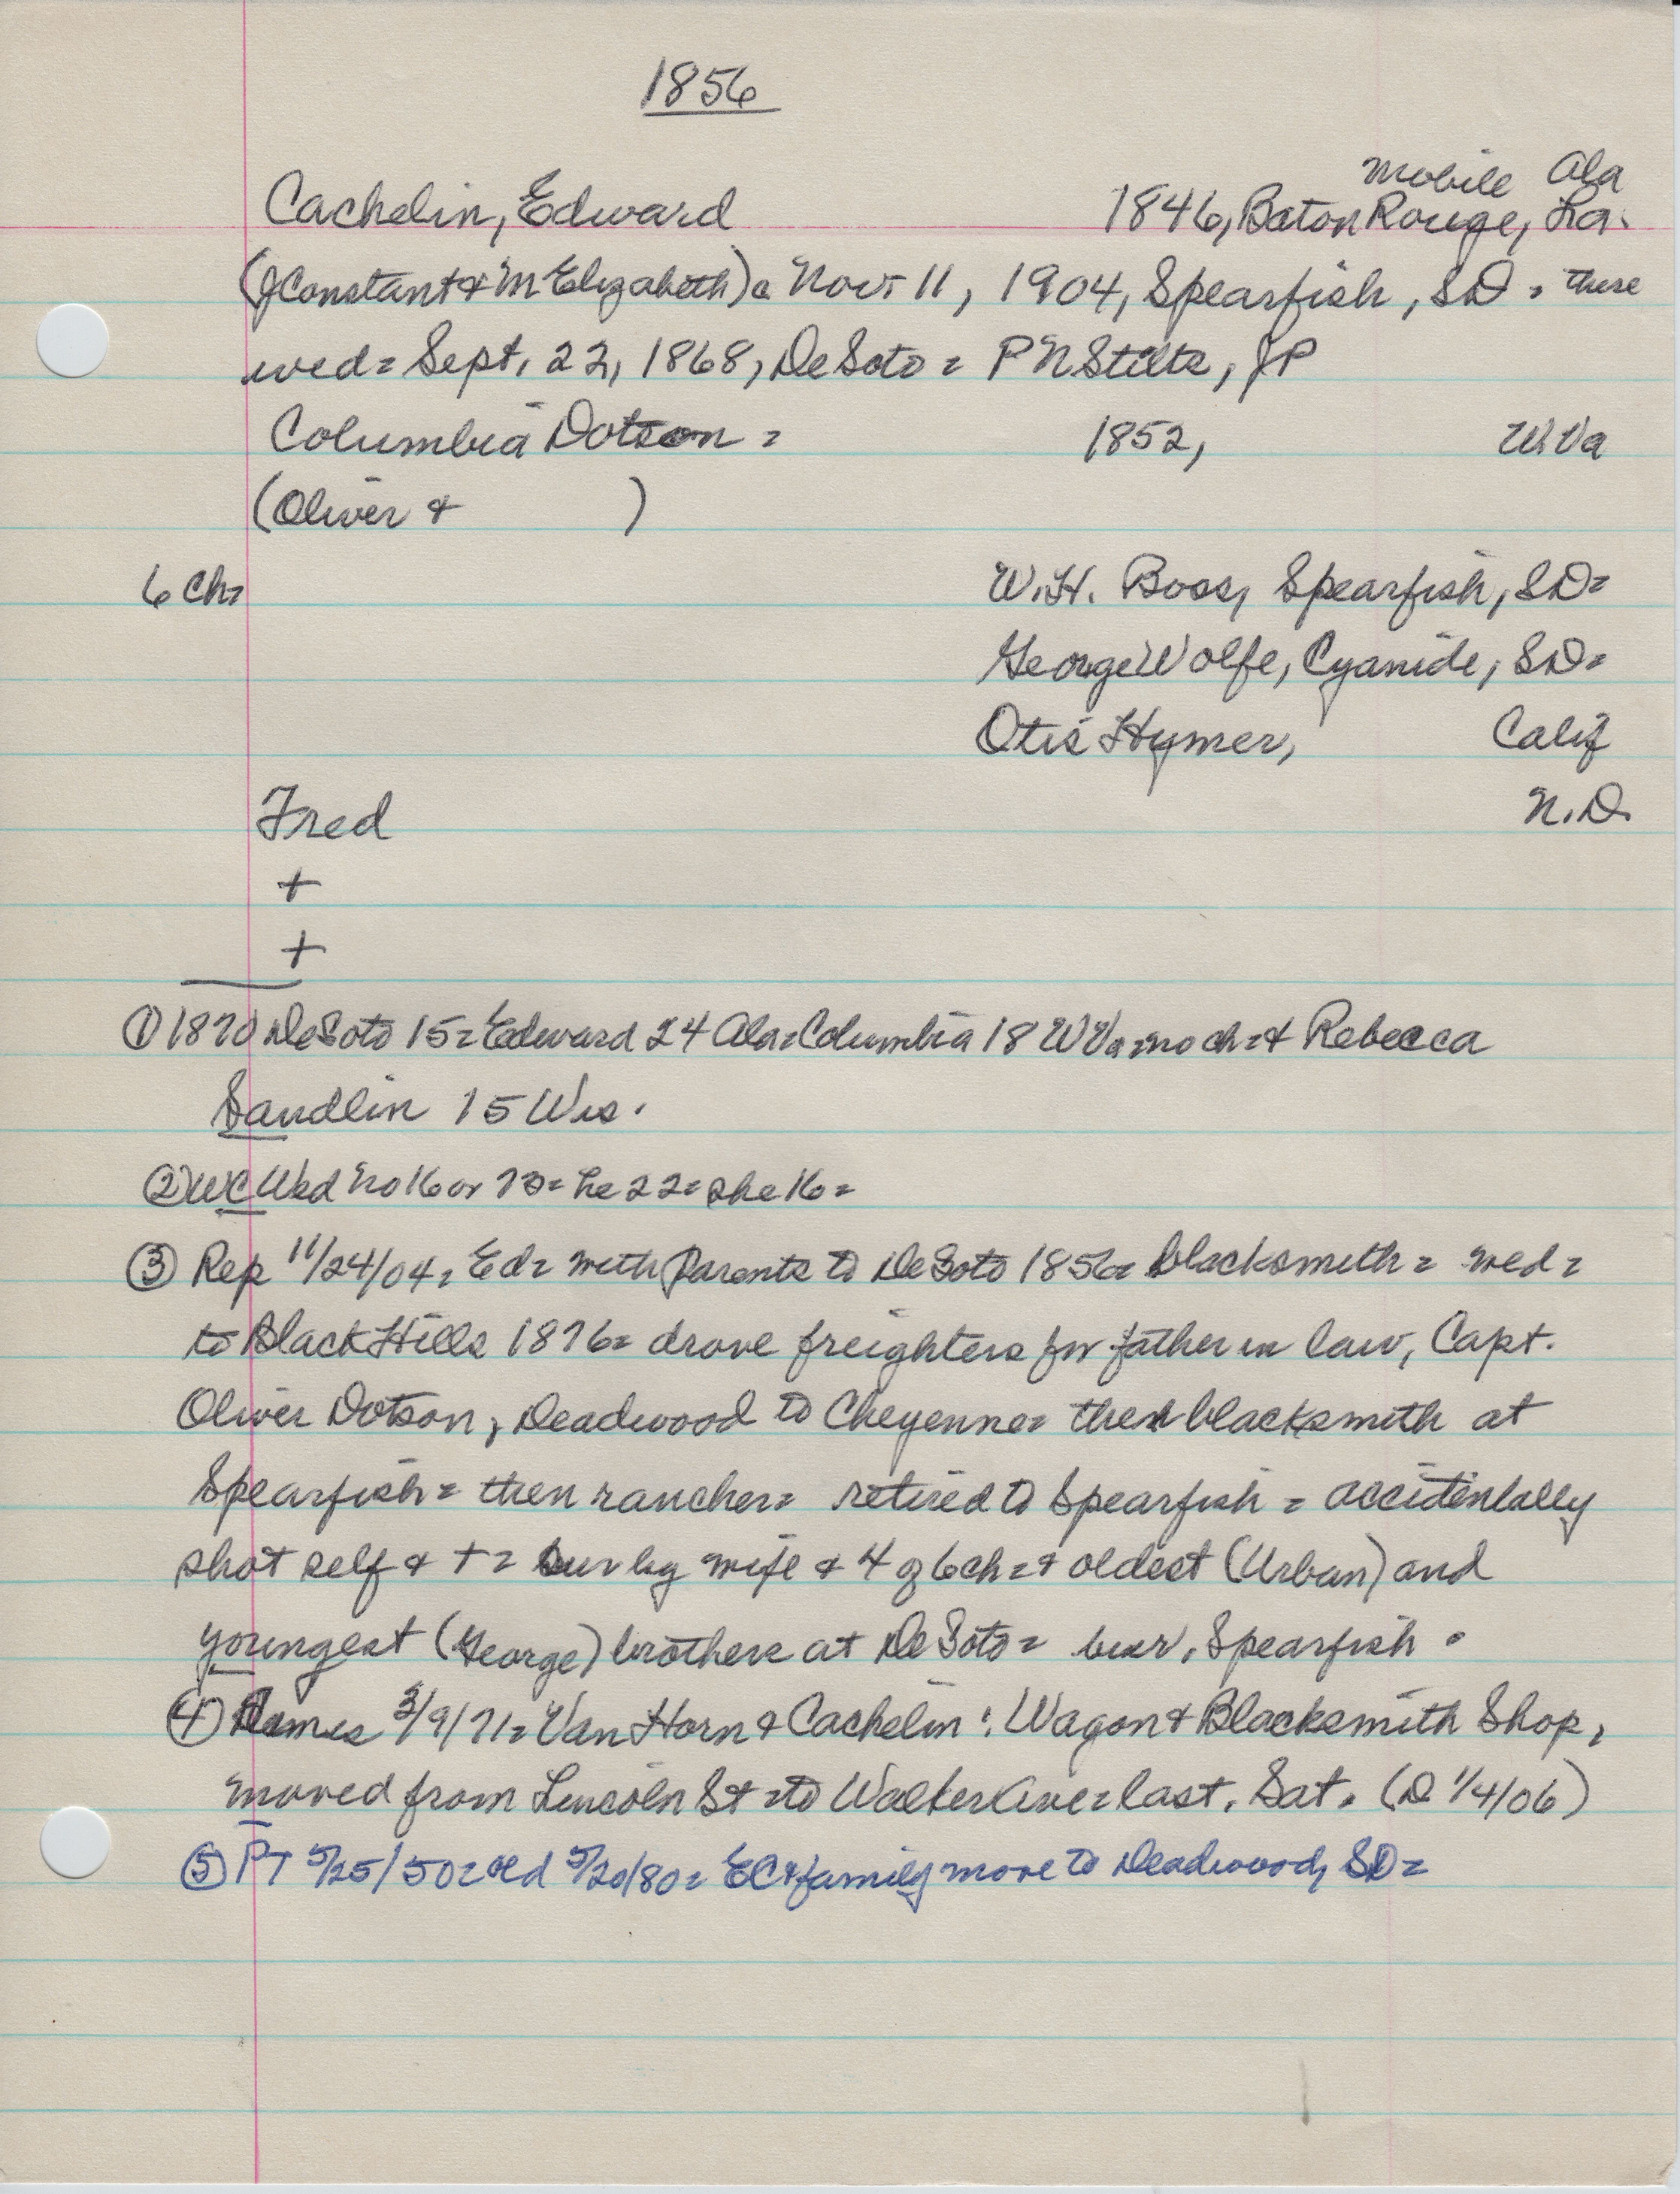 1856
Mobile Ala
Cachelin, Edward 1846, Baton Rouge, La.
(J Constant & M Elizabeth) = Nov. 11, 1904, Spearfish, SD. there
wed = Sept. 22, 1868, DeSoto = P N Stilts, JP
Columbia Dotson = 1852, W.Va
(Oliver & )
6 Ch= W.H. Boss, Spearfish, SD=
George Wolfe, Cyanide, SD=
Otis Hymer, Calif
Fred N.D.
+
+
① 1870 DeSoto 15= Edward 24 Ala= Columbia 18 WVa= no ch= & Rebecca
Sandlin 15 Wis.
② WC Wed No 16 or = he 22= she 16=
③ Rep 11/24/04= Ed= with parents to DeSoto 1856= blacksmith= wed=
to Black Hills 1876= drove freighters for father in law, Capt.
Oliver Dotson, Deadwood to Cheyenne= then blacksmith at
Spearfish= then rancher= retired to Spearfish= accidentally
shot self & += sur by wife & 4 of 6 ch= & oldest (Urban) and
youngest (George) brothers at DeSoto= bur. Spearfish.
④ 3/9/71= Van Horn & Cachelin: Wagon & Blacksmith Shop,
moved from Lincoln St to Walker Ave= last. Sat. (D 1/4/06)
⑤ PT 5/25/50= old 5/20/80= EC & family move to Deadwood, SD=